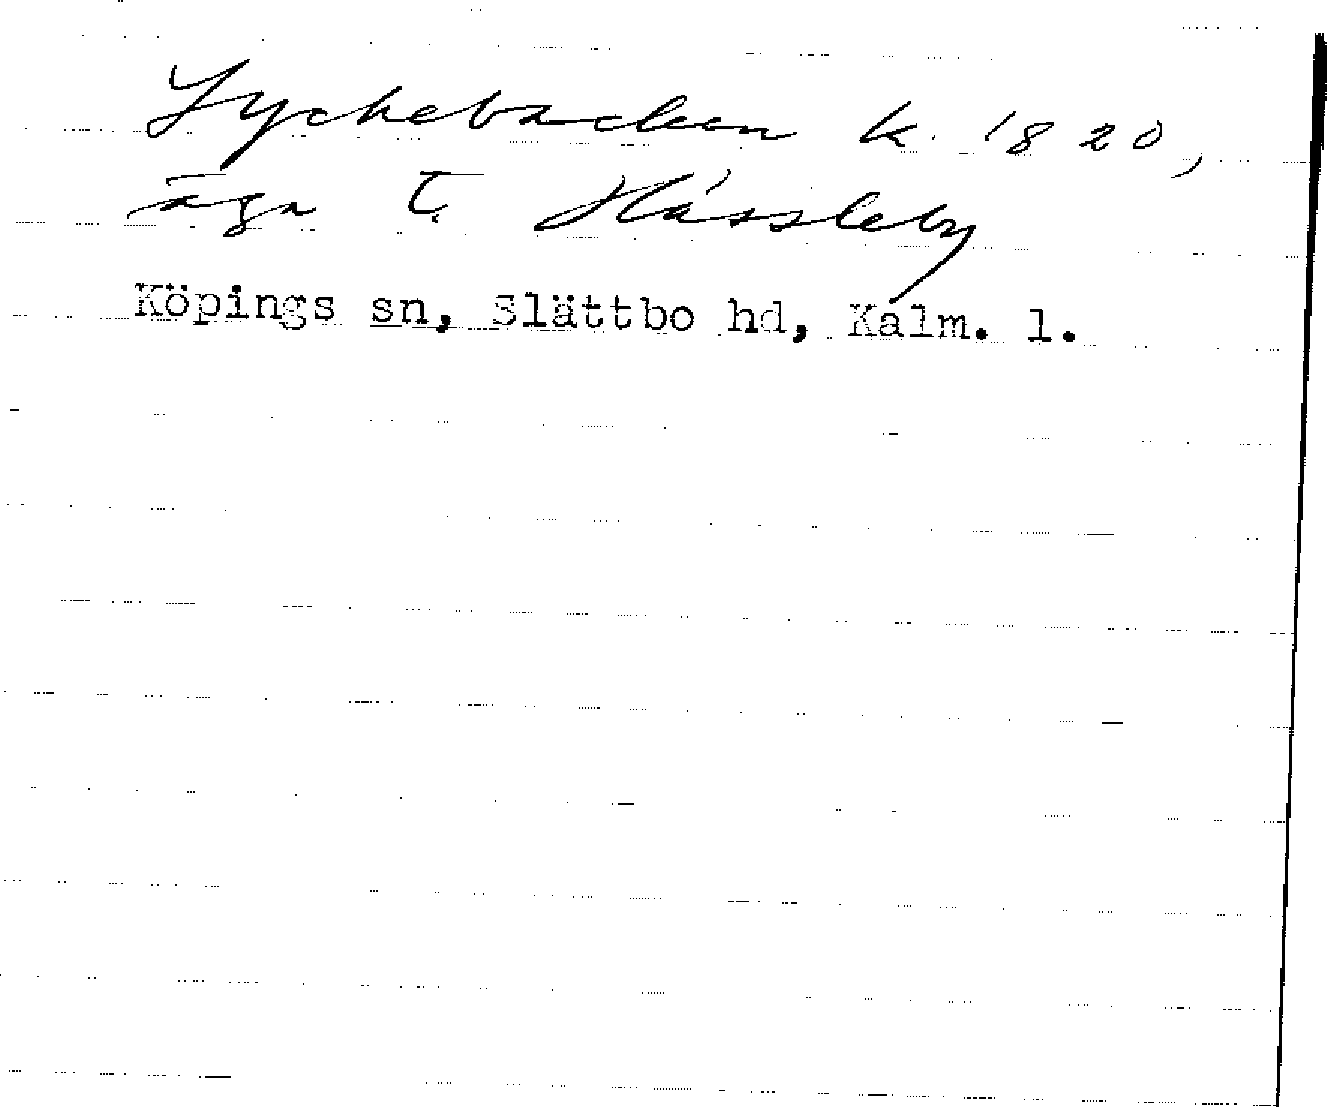 Lyckebacken k. 1820,
äga t. Hässleby
Köpings sn, Slättbo hd, Kalm. l.